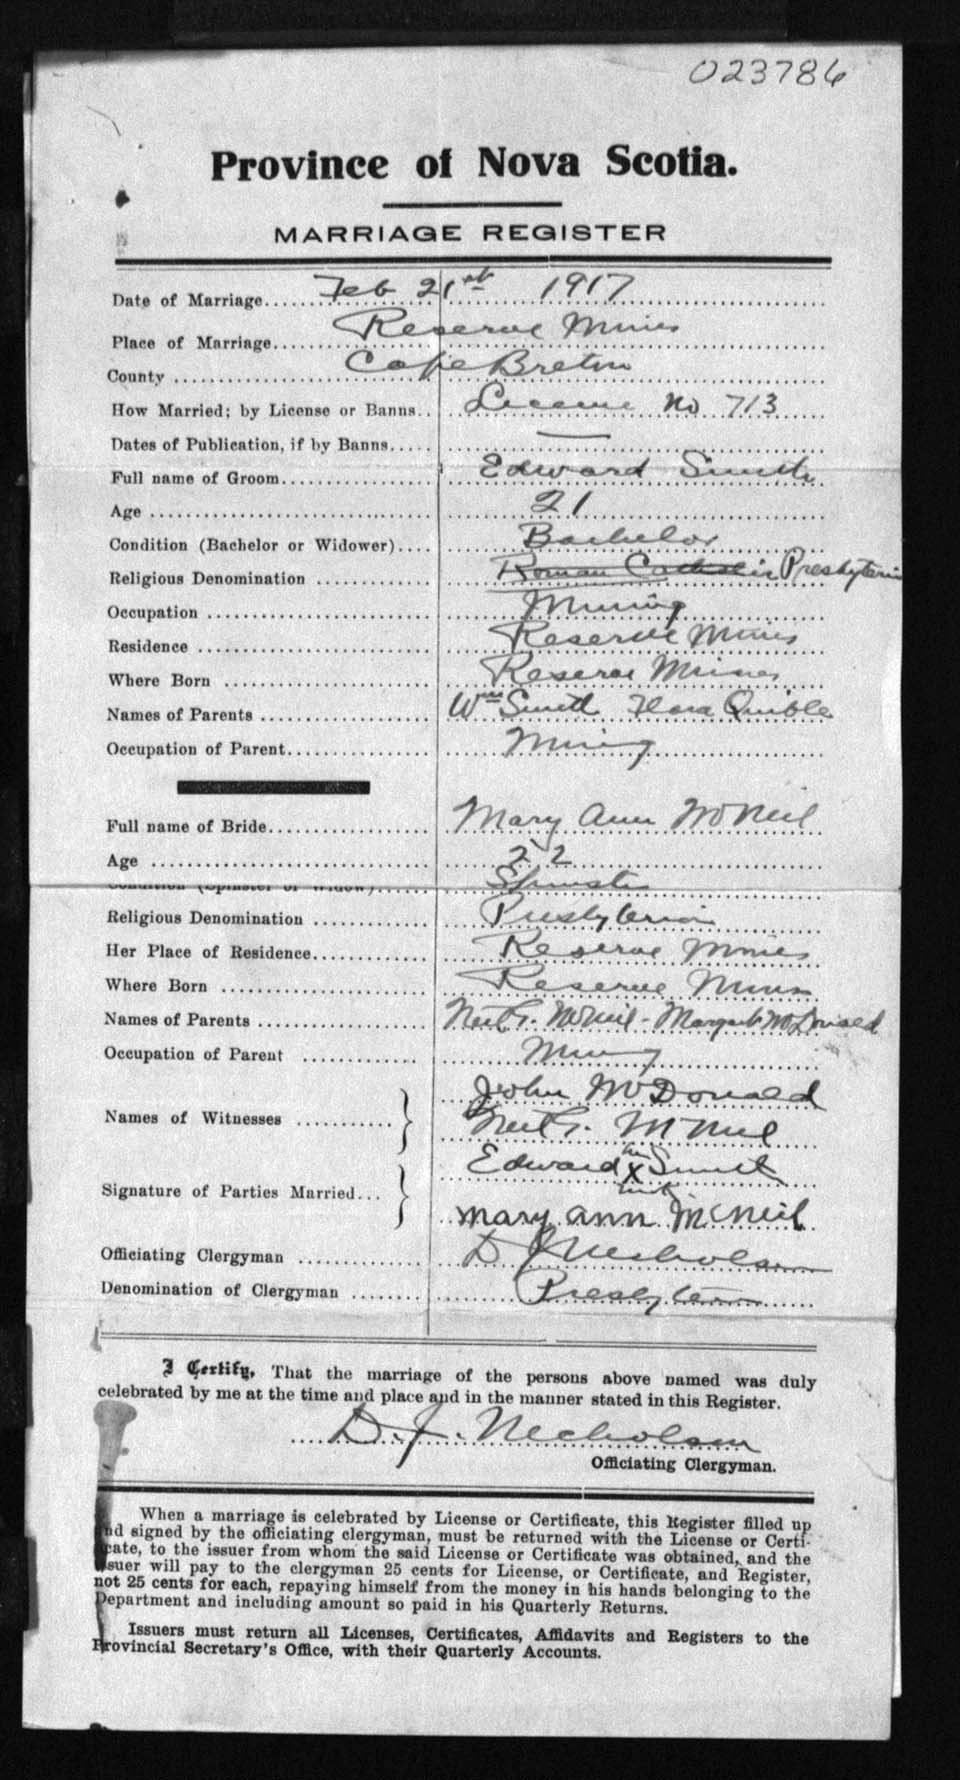 023786
Province of Nova Scotia.
MARRIAGE REGISTER
Date of Marriage......Feb 21st 1917
Place of Marriage......Reserve Mines
County......Cape Breton
How Married; by License or Banns..License No 713
Dates of Publication, if by Banns.....—
Full name of Groom......Edward Smith
Age......21
Condition (Bachelor or Widower)....Bachelor
Religious Denomination......Roman Catholic Presbyterian
Occupation......Mining
Residence......Reserve Mines
Where Born......Reserve Mines
Names of Parents......Wm Smith Flora Quible
Occupation of Parent......Mining
Full name of Bride......Mary Ann McNeil
Age......22
Condition (Spinster or Widow)......Spinster
Religious Denomination......Presbyterian
Her Place of Residence......Reserve Mines
Where Born......Reserve Mines
Names of Parents......Neil G. McNeil - Margaret McDonald
Occupation of Parent......Mining
John McDonald
Names of Witnesses......Neil G. McNeil
Edward his X mark Smith
Signature of Parties Married...
Mary Ann McNeil
Officiating Clergyman......D J Nicholson
Denomination of Clergyman......Presbyterian
I Certify, That the marriage of the persons above named was duly
celebrated by me at the time and place and in the manner stated in this Register.
D. J. Nicholson
Officiating Clergyman.
When a marriage is celebrated by License or Certificate, this Register filled up
and signed by the officiating clergyman, must be returned with the License or Certi-
ficate, to the issuer from whom the said License or Certificate was obtained, and the
issuer will pay to the clergyman 25 cents for License, or Certificate, and Register,
not 25 cents for each, repaying himself from the money in his hands belonging to the
Department and including amount so paid in his Quarterly Returns.
Issuers must return all Licenses, Certificates, Affidavits and Registers to the
Provincial Secretary's Office, with their Quarterly Accounts.